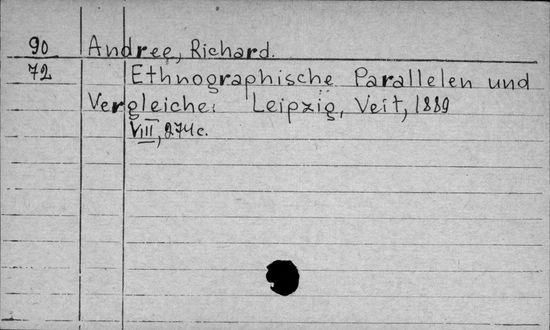 90 Andree, Richard.
72 Ethnographische Parallelen und
Vergleiche: Leipzig, Veit, 1889
VIII, 274 c.